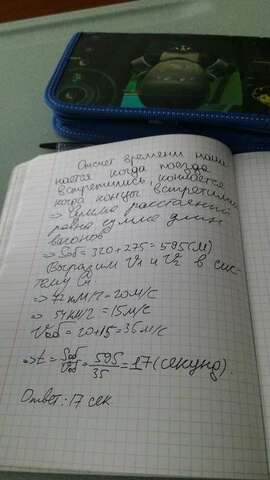 Отсчет времени начи-
нается когда поезда
встретились, кончается
когда концы встретились
=> Сумма расстояний
равна сумме длин
вагонов
=> Sоб = 320+275=595(м)
Выразим V1 и V2 в сис-
тему Си
=> 72 км/ч=20м/с
=> 54 км/ч=15м/с
Vоб = 20+15=35м/с
=> t = Sоб/Vоб = 595/35 = 17 (секунд).
Ответ: 17 сек